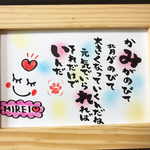 かみがのびて
背がのびて
大きくなっていくんだね
元気で
れば
それだけで
いいんだ
MIREI